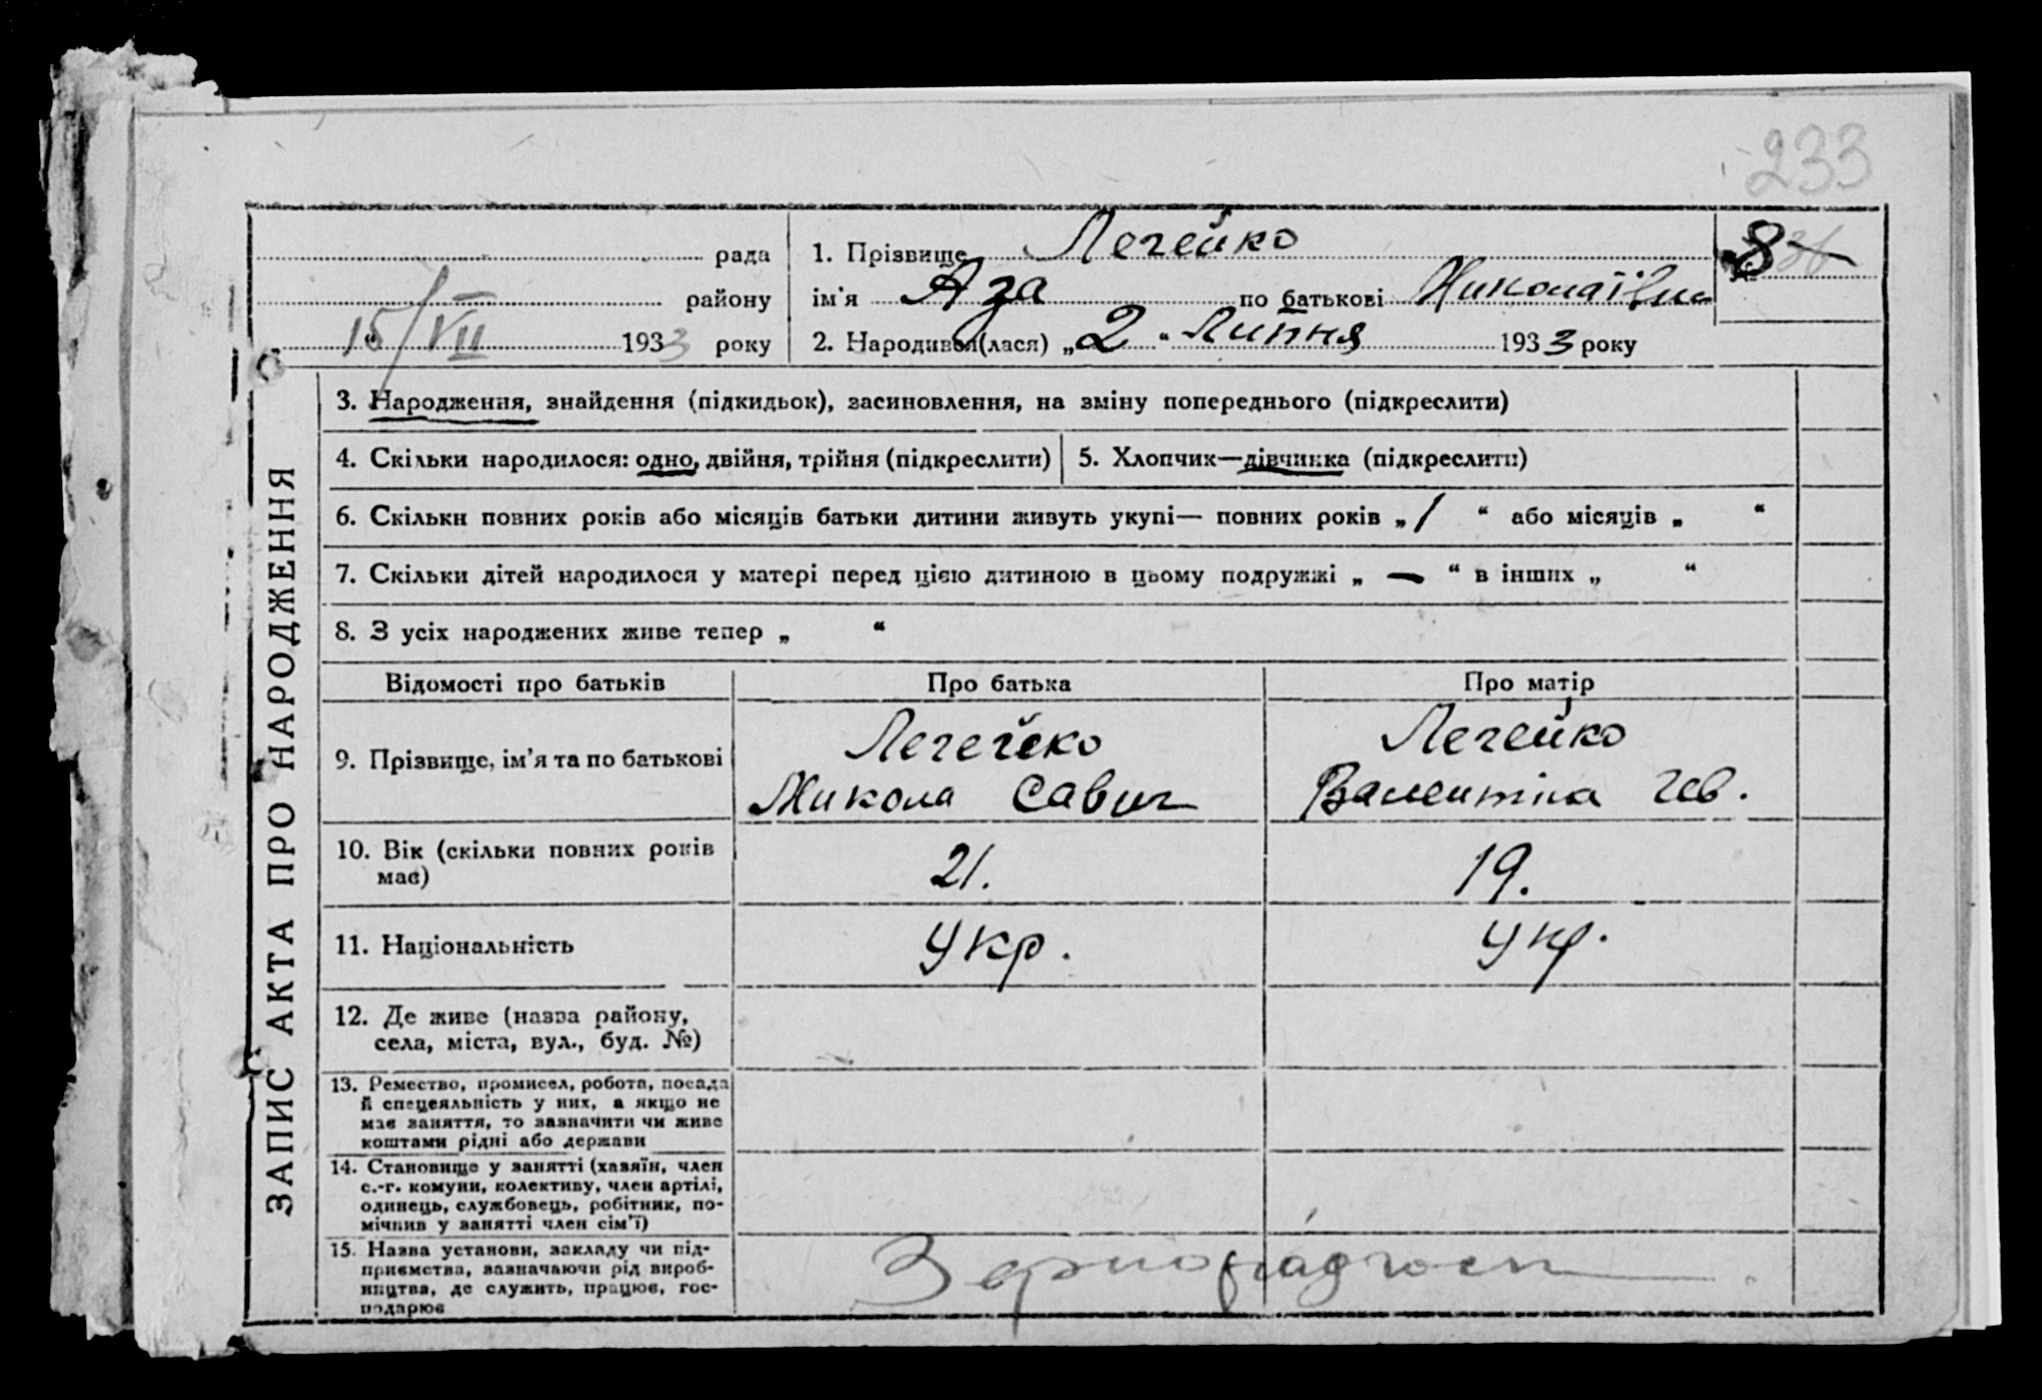 233
рада
1. Прізвище Легейко
8
району
ім'я Аза по батькові
15/VII 1933 року
2. Народився(лася) „2“ Липня 1933 року
ЗАПИС АКТА ПРО НАРОДЖЕННЯ
3. Народження, знайдення (підкидьок), засиновлення, на зміну попереднього (підкреслити)
4. Скільки народилося: одно, двійня, трійня (підкреслити) 5. Хлопчик—дівчинка (підкреслити)
6. Скільки повних років або місяців батьки дитини живуть укупі— повних років „1“ або місяців „ “
7. Скільки дітей народилося у матері перед цією дитиною в цьому подружжі „—“ в інших „ “
8. З усіх народжених живе тепер „ “
Відомості про батьків Про батька Про матір
9. Прізвище, ім'я та по батькові
Легейко
Микола Савич
Легейко
Валентіна
10. Вік (скільки повних років
має)
21. 19.
11. Національність Укр. Укр.
12. Де живе (назва району,
села, міста, вул., буд. №)
13. Ремество, промисел, робота, посада
й спецеяльність у них, а якщо не
має заняття, то зазначити чи живе
коштами рідні або держави
14. Становище у занятті (хазяїн, член
с.-г. комуни, колективу, член артілі,
одинець, службовець, робітник, по-
мічник у занятті член сім'ї)
15. Назва установи, закладу чи під-
приємства, зазначаючи рід вироб-
ництва, де служить, працює, гос-
подарює